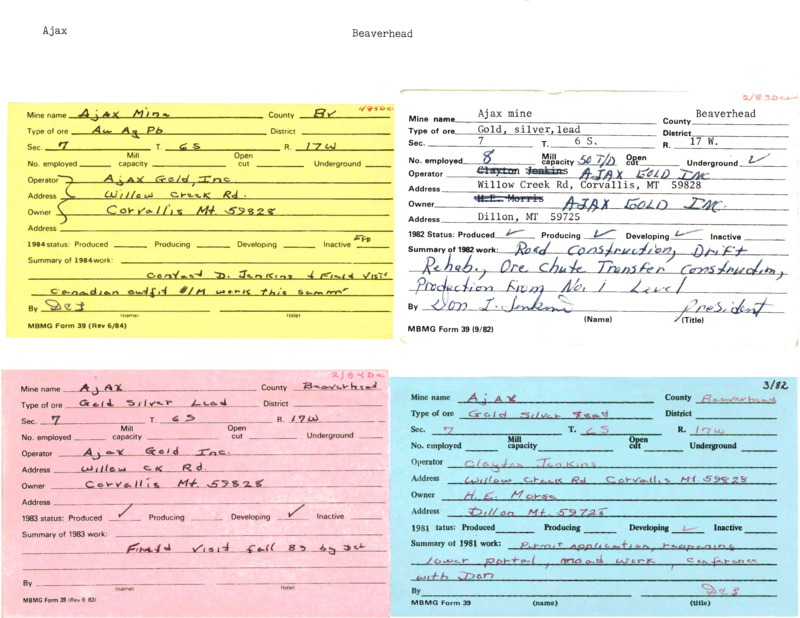 Ajax
Beaverhead
Mine name Ajax Mine County Bv
Type of ore Au Ag Pb District
Sec. 7 T. 6S R. 17W
No. employed Mill capacity Open cut Underground
Operator Ajax Gold, Inc.
Address Willow Creek Rd.
Owner Corvallis Mt. 59828
Address
1984 status: Produced Producing Developing Inactive
Summary of 1984 work:
Contact D. Jenkins & Field Visit
Canadian outfit $1M work this summr
By
(name) (title)
MBMG Form 39 (Rev 6/84)
2/83
Mine name Ajax mine County Beaverhead
Type of ore Gold, silver, lead District
Sec. 7 T. 6 S. R. 17 W.
No. employed 8 Mill capacity 50 T/D Open cut Underground ✓
Operator Clayton Jenkins AJAX GOLD INC
Address Willow Creek Rd, Corvallis, MT 59828
Owner H.E. Morris AJAX GOLD INC.
Address Dillon, MT 59725
1982 Status: Produced ✓ Producing ✓ Developing ✓ Inactive
Summary of 1982 work: Road Construction, Drift
Rehab., Ore Chute Transfer Construction,
Production From No. 1 Level
By Don I. Jenkins President
(Name) (Title)
MBMG Form 39 (9/82)
2/84
Mine name Ajax County Beaverhead
Type of ore Gold Silver Lead District
Sec. 7 T. 6S R. 17W
No. employed Mill capacity Open cut Underground
Operator Ajax Gold Inc.
Address Willow Ck Rd.
Owner Corvallis Mt. 59828
Address
1983 status: Produced ✓ Producing Developing ✓ Inactive
Summary of 1983 work:
Visit fall 83 by
By
(name) (title)
MBMG Form 39 (Rev 6 83)
3/82
Mine name Ajax County Beaverhead
Type of ore Gold Silver Lead District
Sec. 7 T. 6S R. 17W
No. employed Mill capacity Open cut Underground
Operator Clayton Jenkins
Address Willow Creek Rd Corvallis, MT 59828
Owner H.E. Morss
Address Dillon Mt. 59725
1981 tatus: Produced Producing Developing ✓ Inactive
Summary of 1981 work: Permit application, reopening
lower portal, road work, conference
with Don
By
MBMG Form 39 (name) (title)